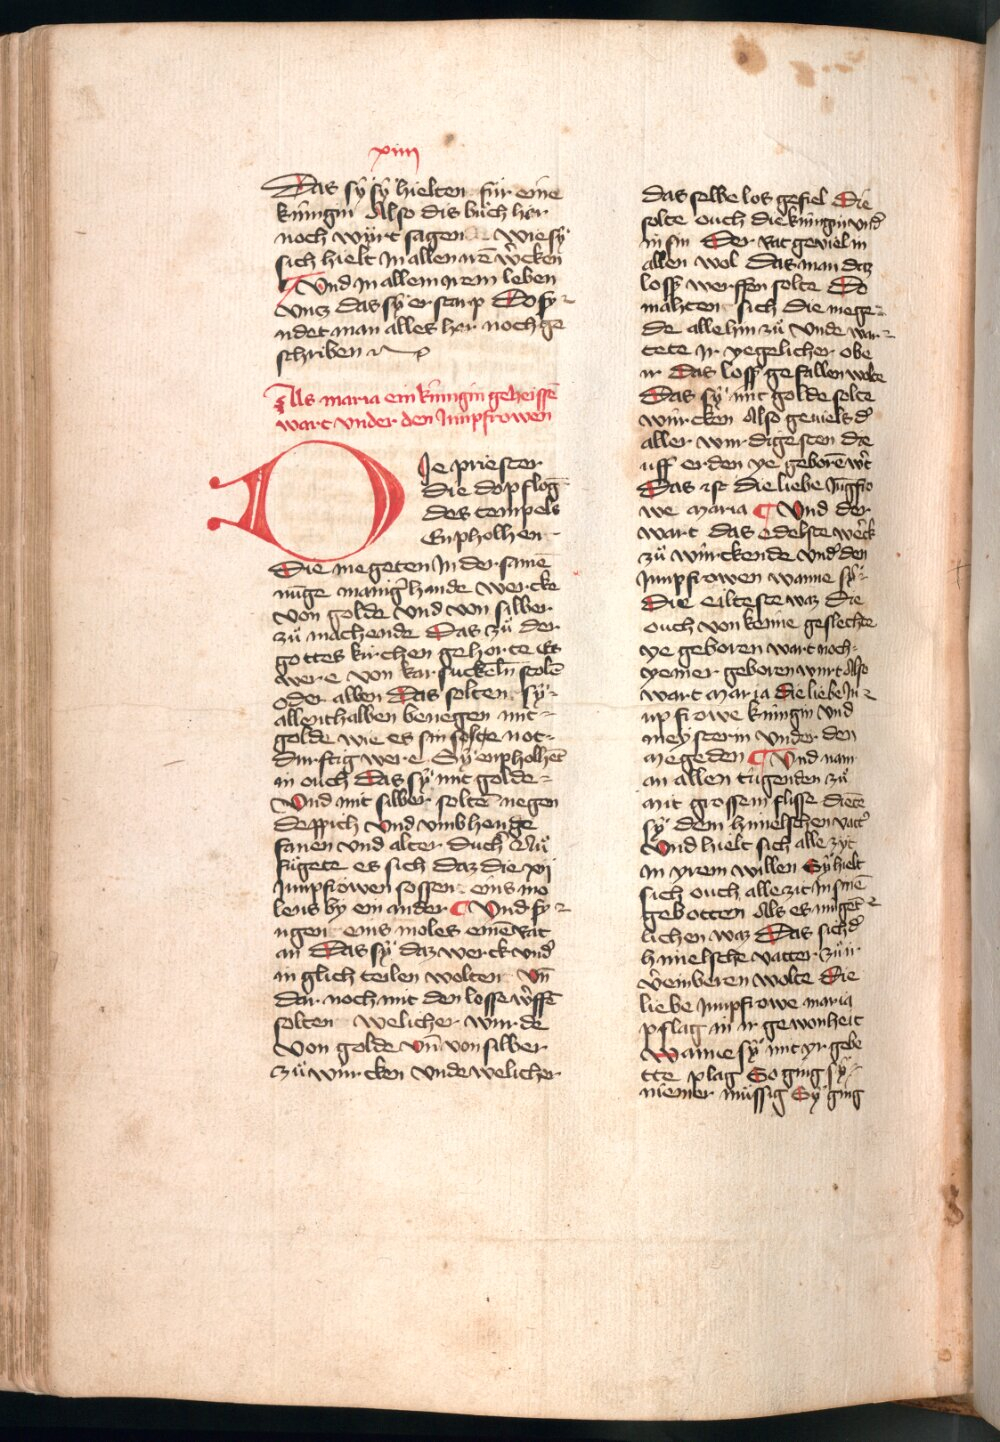 xiiij
Das sÿ sÿ hielten für eine
künigin Also dis bůch har
noch wÿrt sagen Wie sÿ
sich hielt In allen irē wercken
¶ Und in allem irem leben
Untz das sÿ erstarp Do fÿ
ndet man alles har noch ge
schriben
Als maria ein künigin geheissē
wart vnder den Jumpfrowen
DIe priester
die do pflog
des tempels
Enpholhen
Die megeten In der samē
nūge maniger hande wercke
von golde Und von silber
zů machende Das zů der
gottes kirchen gehorte Es
were von karfuckeln stolē
oder alben Das solten sÿ
allenthalben benegen mit
golde wie es sin solte not
durftig were Sÿ enpholhēt
in ouch Das sÿ mit golde
Und mit silber soltē negen
deppich Und vmbhenge
fanen Und alter duch Nů
fůgete es sich daz die xij
Jumpfrowen sossen eins mo
lens bÿ ein ander ¶ Und fÿ
ngen eins moles einē rat
an Das sÿ daz werck und
in glich teilen wolten Uñ
dar noch mit den losse w̄ffē
solten Welicher wurde
Von golde uñ von silber
zů würcken Unde welicher
das selbe los gefiel Die
solte ouch die künigin und
in sin Der rat geviel in
allen wol Das man daz
loss werffen solte Do
mahten sich die mege
de alle hin zů Unde war
tete Ir yegelicher obe
ir Das loss gefallen wolte
Das sÿ mit golde solte
würcken Also geviels d
aller wurdigesten die
uff erden ye geborē wt
Das ist die liebe Jūgfro
we maria ¶ Und der
wart das edelste werck
zů würckende Und den
Jumpfrowen wanne sÿ
Die eilteste waz Die
ouch von keime geslechte
ye geboren wart noch
yemer geboren wurt Also
wart maria Die liebe Ju
mpfrowe künigin Und
meysterin Under den
megeden ¶ Und nam
an allen tůgenden zů
mit grossem flisse dienete
sÿ dem himelschen vatt
Und hielt sich alle zyt
In yrem willen Sÿ hielt
sich ouch alle zit In sinē
gebotten Als es mūget
lichen waz Das sich d
himelsche vatter zů ir
v̄einberen wolte Die
liebe Jumpfrowe maria
pflag in ir gewonheit
Wanne sÿ mit yr gebe
tte plag So ging sÿ
niemer müssig Sÿ ging